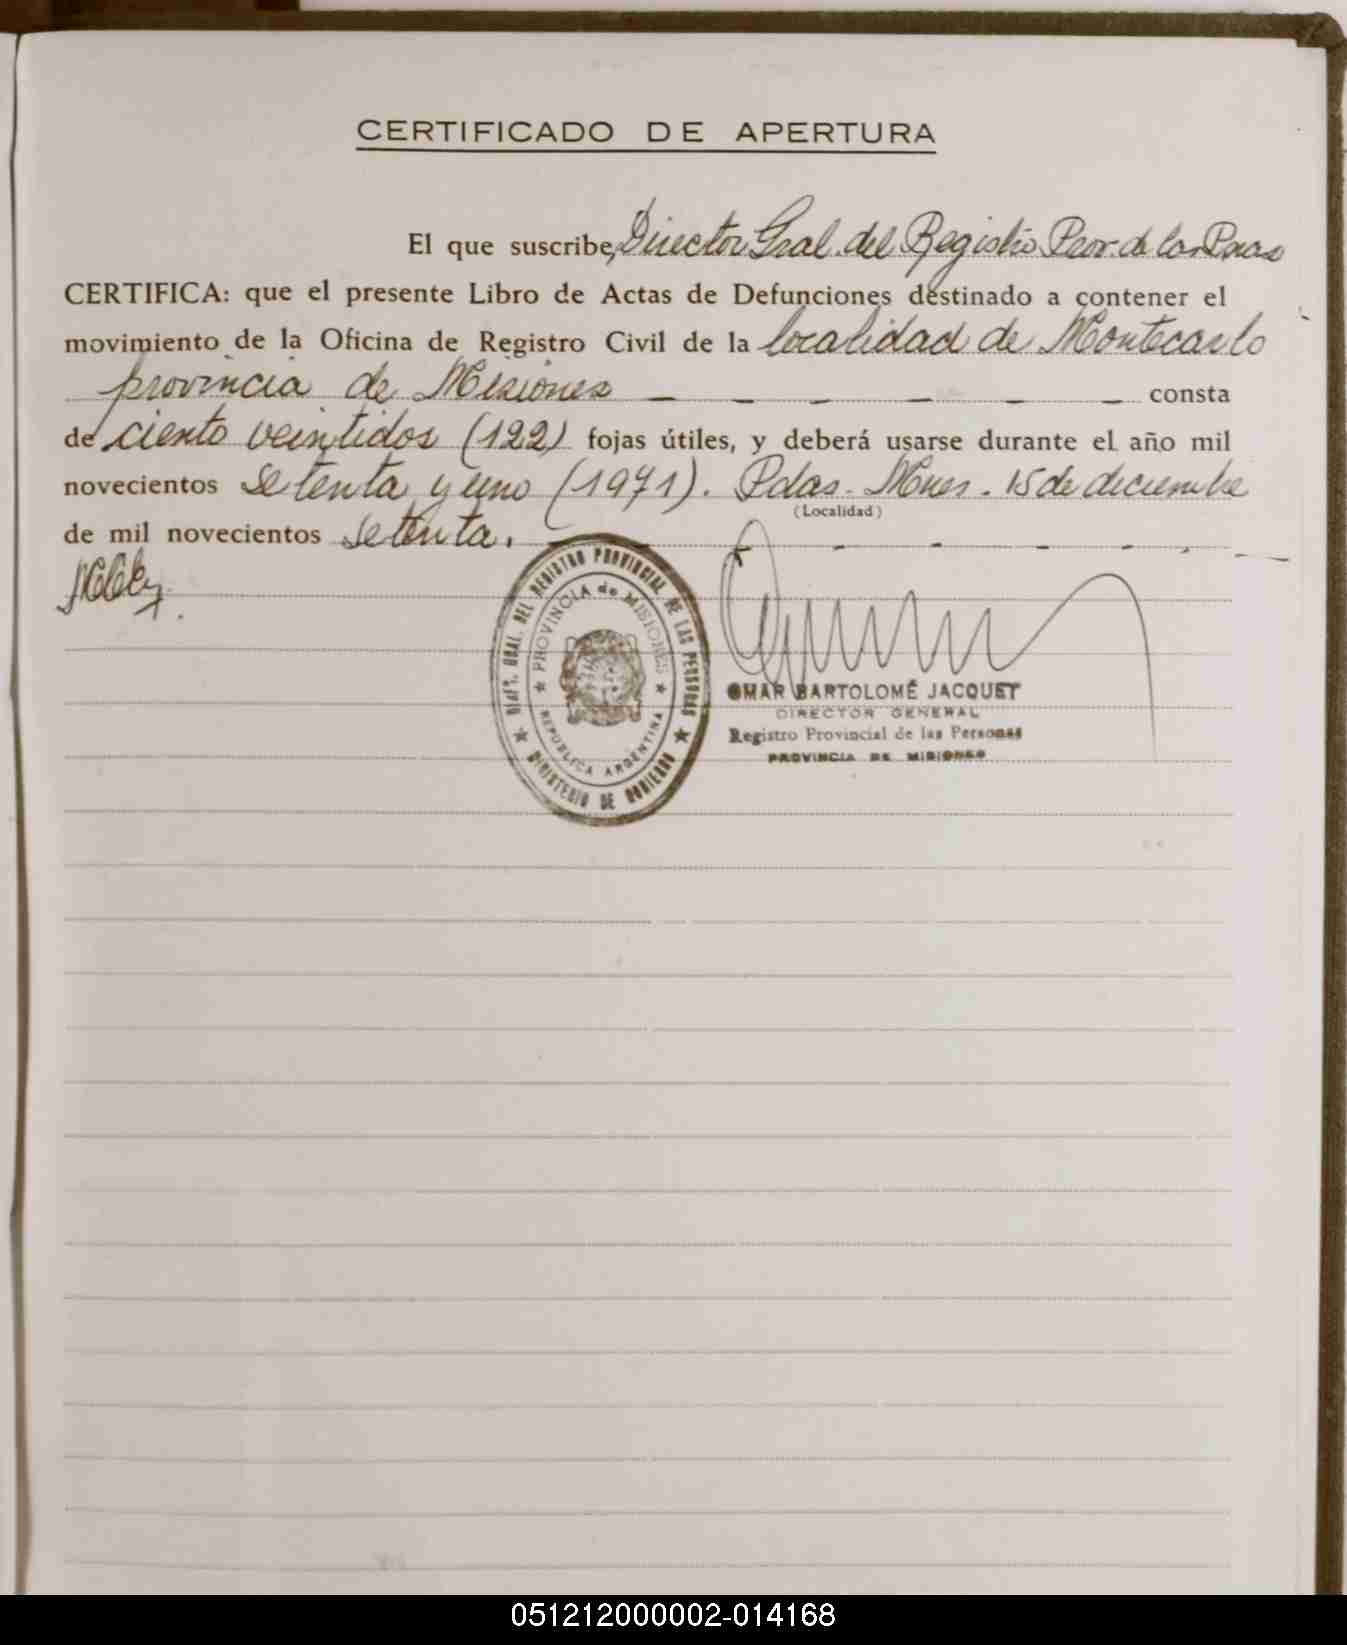 CERTIFICADO DE APERTURA
El que suscribe, Director Gral. del Registro Prov. de las Pnas
CERTIFICA: que el presente Libro de Actas de Defunciones destinado a contener el
movimiento de la Oficina de Registro Civil de la localidad de Montecarlo
provincia de Misiones — — — — — — consta
de ciento veintidos (122) fojas útiles, y deberá usarse durante el año mil
novecientos setenta y uno (1971). Pdas. Mnes. 15 de diciembre
(Localidad)
de mil novecientos setenta.
DIRº. GRAL. DEL REGISTRO PROVINCIAL DE LAS PERSONAS
PROVINCIA de MISIONES
REPUBLICA ARGENTINA
MINISTERIO DE GOBIERNO
OMAR BARTOLOMÉ JACQUET
DIRECTOR GENERAL
Registro Provincial de las Personas
PROVINCIA DE MISIONES
051212000002-014168